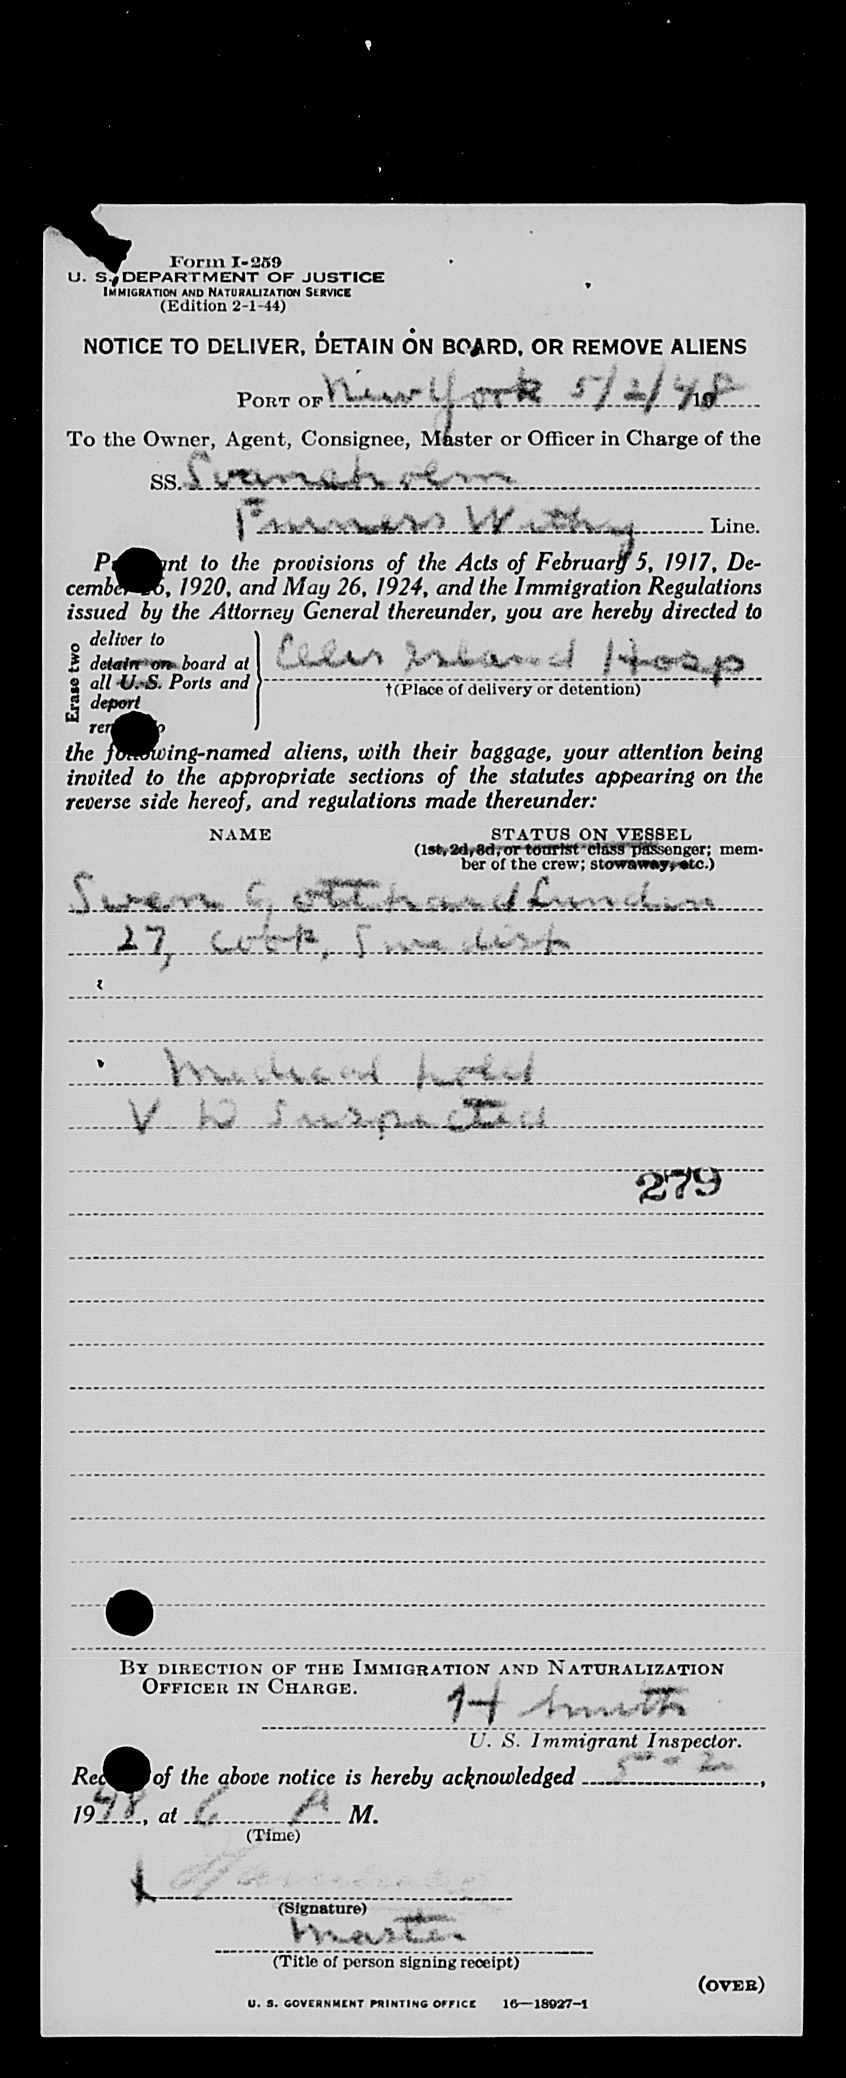 Form I-259
U. S. DEPARTMENT OF JUSTICE
IMMIGRATION AND NATURALIZATION SERVICE
(Edition 2-1-44)
NOTICE TO DELIVER, DETAIN ON BOARD, OR REMOVE ALIENS
PORT OF New York 5/2/48 19
To the Owner, Agent, Consignee, Master or Officer in Charge of the
SS. Svaneholm
Furness Withy Line.
P nt to the provisions of the Acts of February 5, 1917, De-
cember 6, 1920, and May 26, 1924, and the Immigration Regulations
issued by the Attorney General thereunder, you are hereby directed to
Erase two
deliver to
detain on board at
all U. S. Ports and
deport
Ellis Island Hosp
†(Place of delivery or detention)
the following-named aliens, with their baggage, your attention being
invited to the appropriate sections of the statutes appearing on the
reverse side hereof, and regulations made thereunder:
NAME STATUS ON VESSEL
(1st, 2d, 3d, or tourist class passenger; mem-
ber of the crew; stowaway, etc.)
Sven Gotthard Lundin
27, cook, Swedish
Medical hold
V D Suspected
279
BY DIRECTION OF THE IMMIGRATION AND NATURALIZATION
OFFICER IN CHARGE.
H Smith
U. S. Immigrant Inspector.
Rec of the above notice is hereby acknowledged 5-2,
1948, at 6 A M.
(Time)
(Signature)
Master
(Title of person signing receipt)
(OVER)
U. S. GOVERNMENT PRINTING OFFICE 16—18927-1